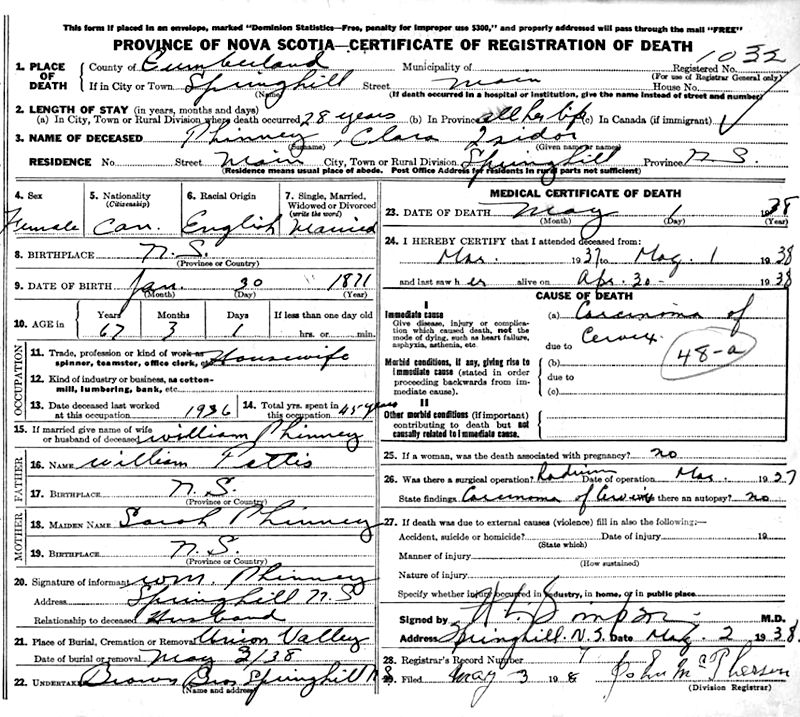 This form if placed in an envelope, marked "Dominion Statistics—Free, penalty for improper use $300," and properly addressed will pass through the mail "FREE"
PROVINCE OF NOVA SCOTIA—CERTIFICATE OF REGISTRATION OF DEATH
1032
1. PLACE OF DEATH County of Cumberland Municipality of Registered No.
(For use of Registrar General only)
If in City or Town Springhill Street Main House No.
(Name) (If death occurred in a hospital or institution, give the name instead of street and number)
2. LENGTH OF STAY (in years, months and days)
(a) In City, Town or Rural Division where death occurred 28 years (b) In Province all her life (c) In Canada (if immigrant)
3. NAME OF DECEASED Phinney, Clara Isidor
(Given name or names)
RESIDENCE No. Street Main City, Town or Rural Division Springhill Province N.S.
(Residence means usual place of abode. Post Office Address for residents in rural parts not sufficient)
4. Sex Female
5. Nationality (Citizenship) Can.
6. Racial Origin English
7. Single, Married, Widowed or Divorced (write the word) Married
8. BIRTHPLACE N.S.
(Province or Country)
9. DATE OF BIRTH Jan. 30 1871
(Month) (Day) (Year)
10. AGE in Years Months Days If less than one day old
67 3 1 hrs. or min.
OCCUPATION
11. Trade, profession or kind of work as spinner, teamster, office clerk, etc. Housewife
12. Kind of industry or business, as cotton-mill, lumbering, bank, etc.
13. Date deceased last worked at this occupation 1936
14. Total yrs. spent in this occupation 45 years
15. If married give name of wife or husband of deceased William Phinney
FATHER
16. NAME William
17. BIRTHPLACE N.S.
(Province or Country)
MOTHER
18. MAIDEN NAME Sarah Phinney
19. BIRTHPLACE N.S.
(Province or Country)
20. Signature of informant Wm. Phinney
Address Springhill N.S
Relationship to deceased Husband
21. Place of Burial, Cremation or Removal Union Valley
Date of burial or removal May 3/38
22. Undertaker Browns Bros Springhill N.S
(Name and address)
MEDICAL CERTIFICATE OF DEATH
23. DATE OF DEATH May 1 1938
(Month) (Day) (Year)
24. I HEREBY CERTIFY that I attended deceased from:
Mar. 1937 to May. 1 1938
and last saw her alive on Apr. 30 - 1938
CAUSE OF DEATH
I
Immediate cause
Give disease, injury or complication which caused death, not the mode of dying, such as heart failure, asphyxia, asthenia, etc.
(a) Carcinoma of Cervix
due to
48-a
Morbid conditions, if any, giving rise to immediate cause (stated in order proceeding backwards from immediate cause).
(b)
due to
(c)
II
Other morbid conditions (if important) contributing to death but not causally related to immediate cause.
25. If a woman, was the death associated with pregnancy? no
26. Was there a surgical operation? Radium Date of operation Mar. 1937
State findings Carcinoma of Cervix there an autopsy? no
27. If death was due to external causes (violence) fill in also the following:—
Accident, suicide or homicide? Date of injury 19
(State which)
Manner of injury
(How sustained)
Nature of injury
Specify whether injury occurred in industry, in home, or in public place
Signed by Simpson M.D.
Address Springhill. N.S. Date May. 2 1938.
28. Registrar's Record Number 7
29. Filed May 3 1938 John McPherson
(Division Registrar)